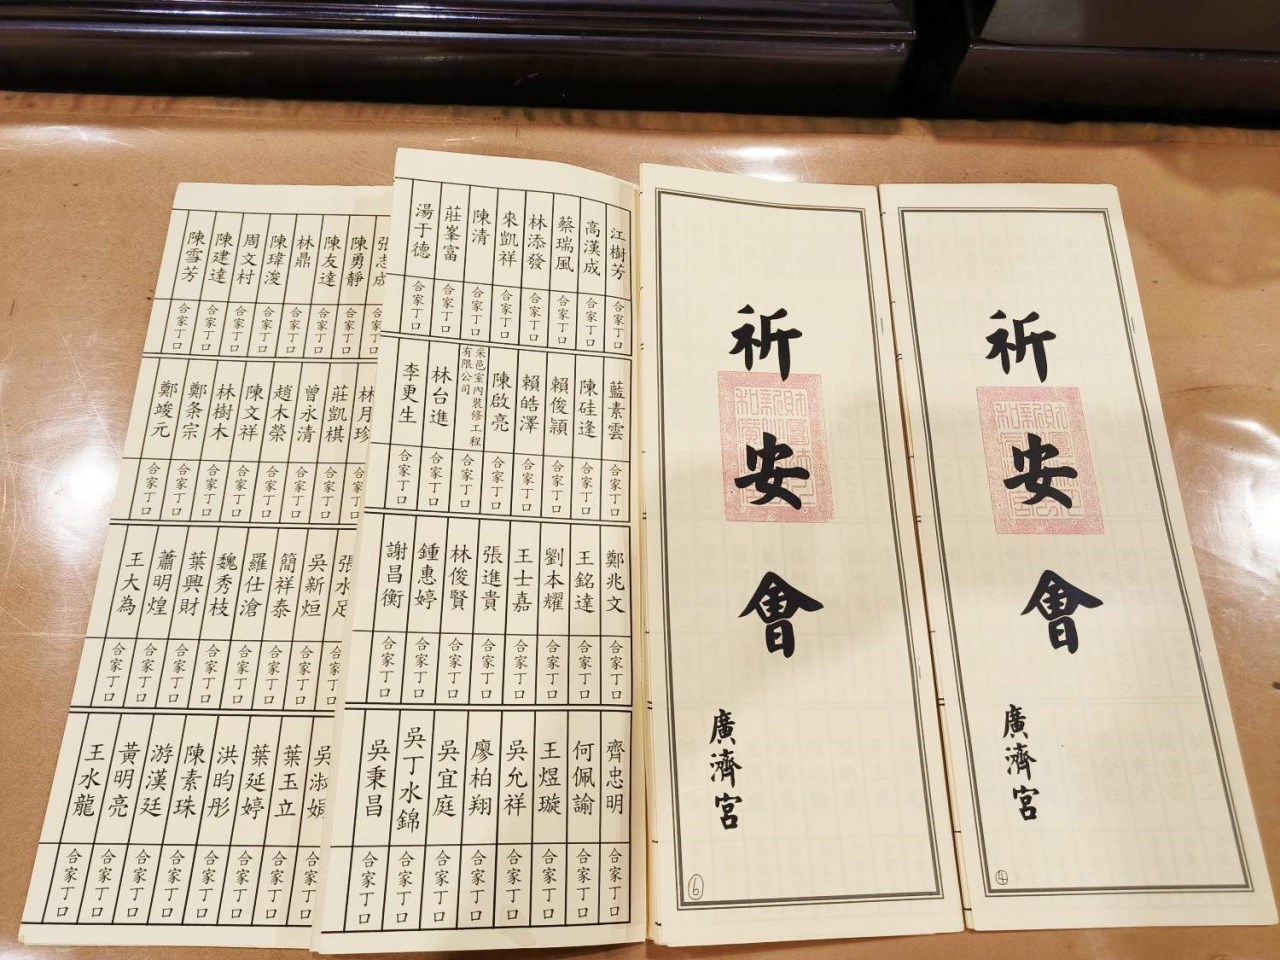 祈安會
廣濟宮
④
祈安會
廣濟宮
⑥
江樹芳 合家丁口
高漢成 合家丁口
蔡瑞風 合家丁口
林添發 合家丁口
來凱祥 合家丁口
陳清 合家丁口
莊峯富 合家丁口
湯于德 合家丁口
藍素雲 合家丁口
陳硅逢 合家丁口
賴俊穎 合家丁口
賴皓澤 合家丁口
陳啟亮 合家丁口
采邑室內裝修工程有限公司 合家丁口
林台進 合家丁口
李更生 合家丁口
鄭兆文 合家丁口
王銘達 合家丁口
劉本耀 合家丁口
王士嘉 合家丁口
張進貴 合家丁口
林俊賢 合家丁口
鍾惠婷 合家丁口
謝昌衡 合家丁口
齊忠明 合家丁口
何佩諭 合家丁口
王煜璇 合家丁口
吳允祥 合家丁口
廖柏翔 合家丁口
吳宜庭 合家丁口
吳丁水錦 合家丁口
吳秉昌 合家丁口
張志成 合家丁口
陳勇靜 合家丁口
陳友達 合家丁口
林鼎 合家丁口
陳瑋浚 合家丁口
周文村 合家丁口
陳建達 合家丁口
陳雪芳 合家丁口
林月珍 合家丁口
莊凱棋 合家丁口
曾永清 合家丁口
趙木榮 合家丁口
陳文祥 合家丁口
林樹木 合家丁口
鄭条宗 合家丁口
鄭竣元 合家丁口
張水足 合家丁口
吳新烜 合家丁口
簡祥泰 合家丁口
羅仕滄 合家丁口
魏秀枝 合家丁口
葉興財 合家丁口
蕭明煌 合家丁口
王大為 合家丁口
吳淑娟 合家丁口
葉玉立 合家丁口
葉延婷 合家丁口
洪昀彤 合家丁口
陳素珠 合家丁口
游漢廷 合家丁口
黃明亮 合家丁口
王水龍 合家丁口